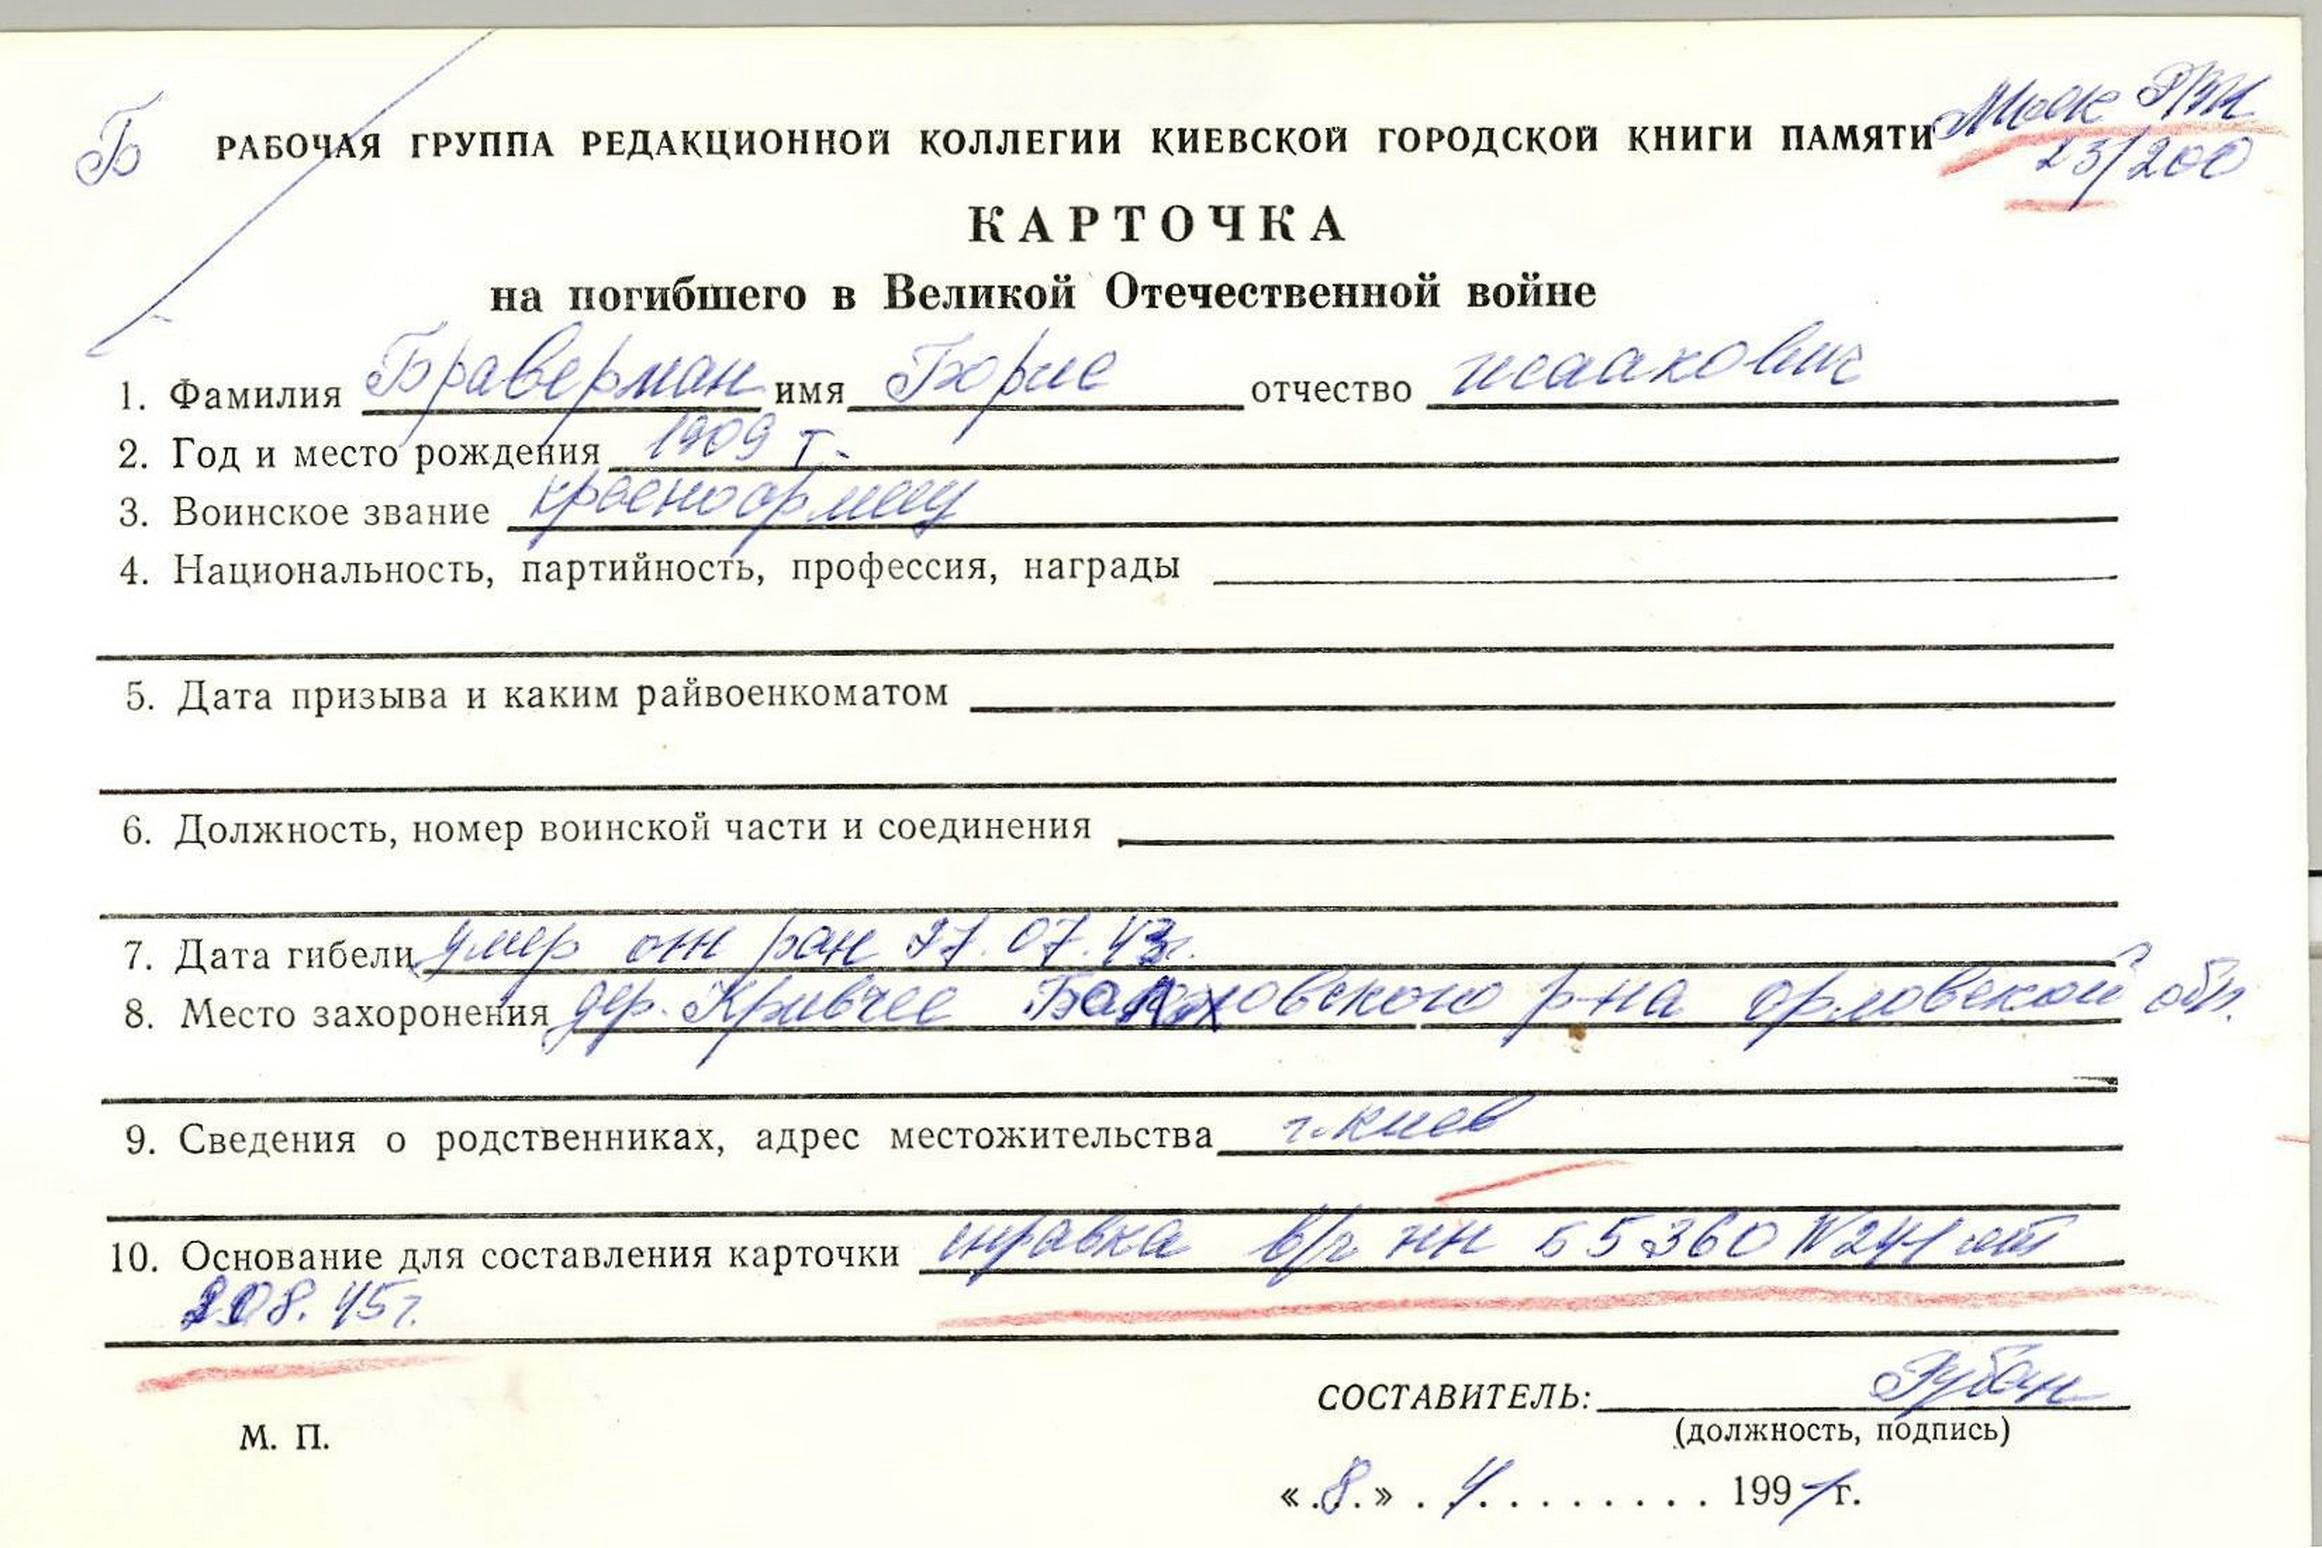 Б РАБОЧАЯ ГРУППА РЕДАКЦИОННОЙ КОЛЛЕГИИ КИЕВСКОЙ ГОРОДСКОЙ КНИГИ ПАМЯТИ
23/200
КАРТОЧКА
на погибшего в Великой Отечественной войне
1. Фамилия Браверман имя Борис отчество исаакович
2. Год и место рождения 1909 г.
3. Воинское звание красноармеец
4. Национальность, партийность, профессия, награды
5. Дата призыва и каким райвоенкоматом
6. Должность, номер воинской части и соединения
7. Дата гибели умер от ран 07.43г.
8. Место захоронения дер. Кривчее р-на орловской обл.
9. Сведения о родственниках, адрес местожительства г. Киев
10. Основание для составления карточки справка в/ч пп 55360 N241 от
08.45г.
СОСТАВИТЕЛЬ: Рубан
(должность, подпись)
М. П.
«8» 4 1991г.